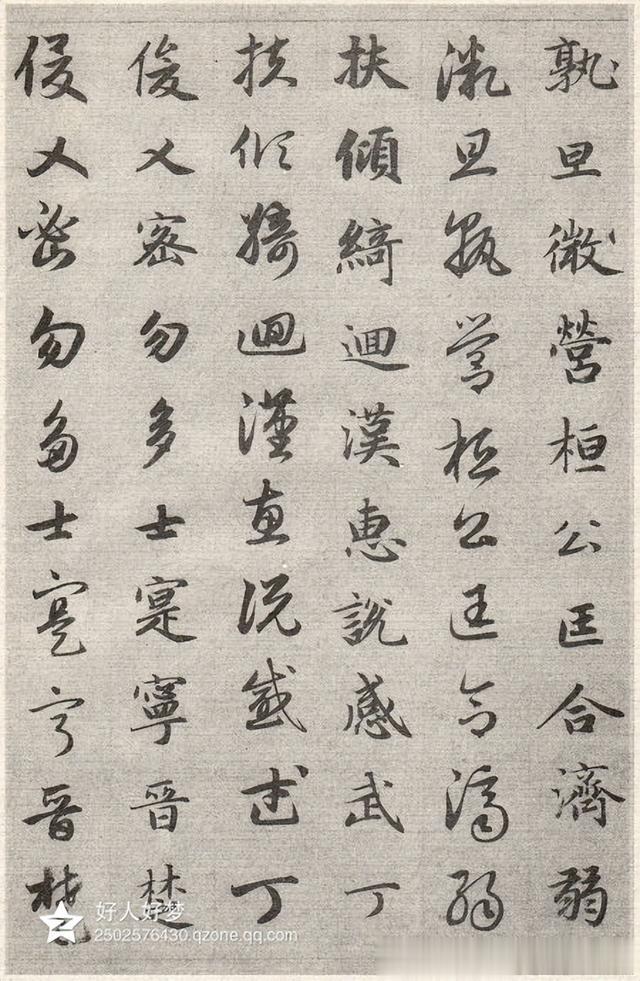 孰旦微營桓公匡合濟弱
微旦孰營桓公匡合濟弱
扶傾綺迴漢惠說感武丁
扶傾綺迴漢惠說感武丁
俊乂密勿多士寔寧晉楚
俊乂密勿多士寔寧晉楚
好人好梦
2502576430.qzone.qq.com